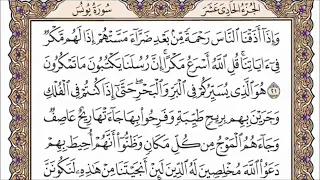 الجزء الحادى عشر
سورة يونس
وَإِذَآ أَذَقْنَا ٱلنَّاسَ رَحْمَةً مِّنۢ بَعْدِ ضَرَّآءَ مَسَّتْهُمْ إِذَا لَهُم مَّكْرٌ
فِىٓ ءَايَاتِنَا ۚ قُلِ ٱللَّهُ أَسْرَعُ مَكْرًا ۚ إِنَّ رُسُلَنَا يَكْتُبُونَ مَا تَمْكُرُونَ
٢١ هُوَ ٱلَّذِى يُسَيِّرُكُمْ فِى ٱلْبَرِّ وَٱلْبَحْرِ ۖ حَتَّىٰٓ إِذَا كُنتُمْ فِى ٱلْفُلْكِ
وَجَرَيْنَ بِهِم بِرِيحٍ طَيِّبَةٍ وَفَرِحُوا۟ بِهَا جَآءَتْهَا رِيحٌ عَاصِفٌ
وَجَآءَهُمُ ٱلْمَوْجُ مِن كُلِّ مَكَانٍ وَظَنُّوٓا۟ أَنَّهُمْ أُحِيطَ بِهِمْ ۙ
دَعَوُا۟ ٱللَّهَ مُخْلِصِينَ لَهُ ٱلدِّينَ لَئِنْ أَنجَيْتَنَا مِنْ هَٰذِهِۦ لَنَكُونَنَّ